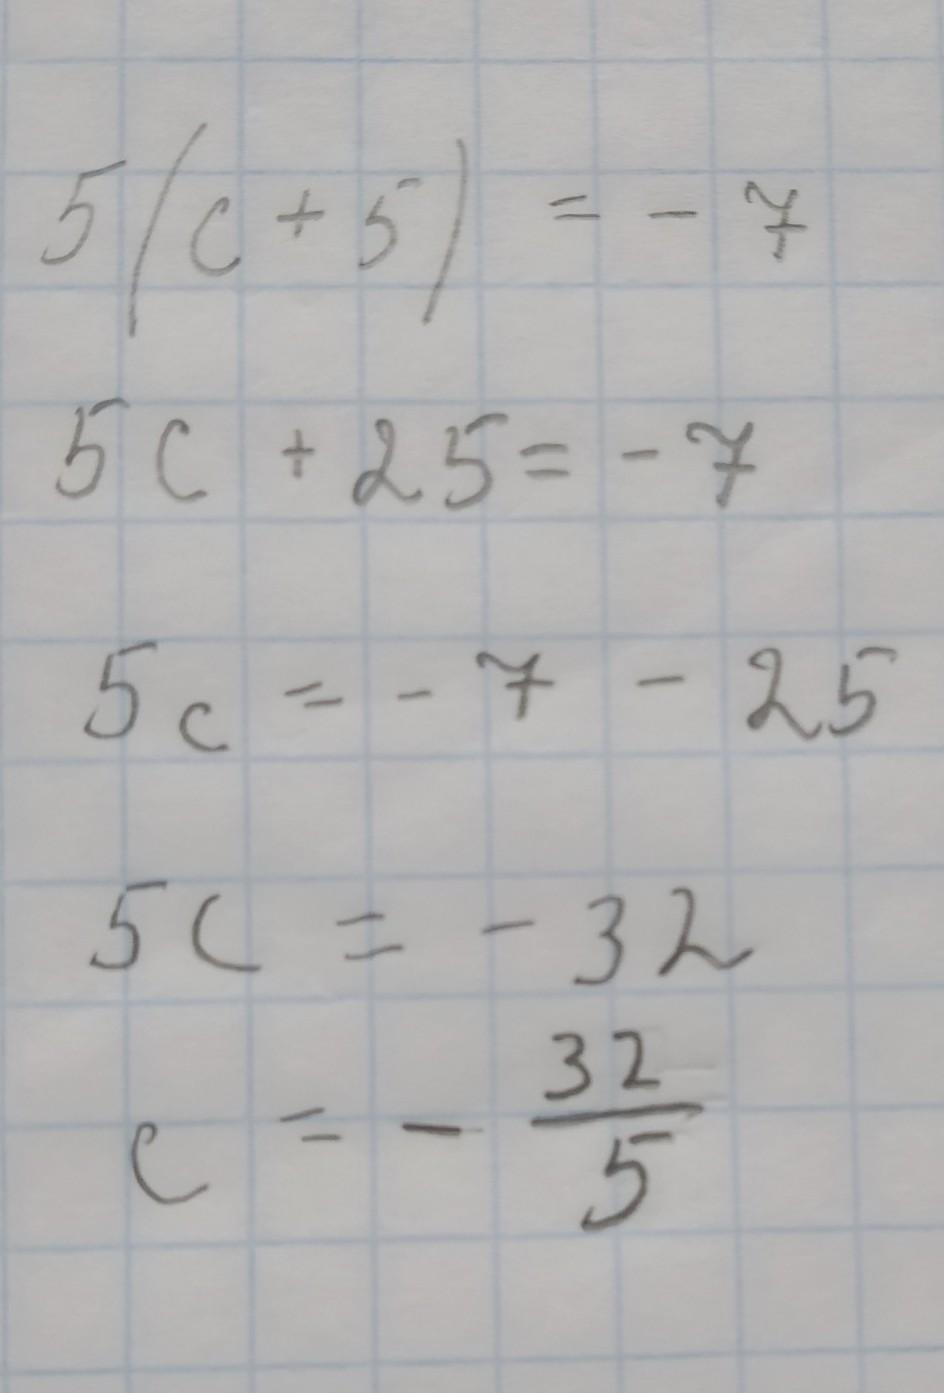 5(c + 5) = - 7
5c + 25 = - 7
5c = - 7 - 25
5c = - 32
c = - 32/5